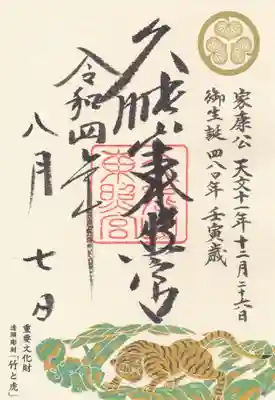 家康公 天文十一年 十二月 二十六日
御生誕 四八〇年 壬寅歳
久能山東照宮
東照宮
令和四年
八月 七日
重要文化財
彫刻「竹と虎」